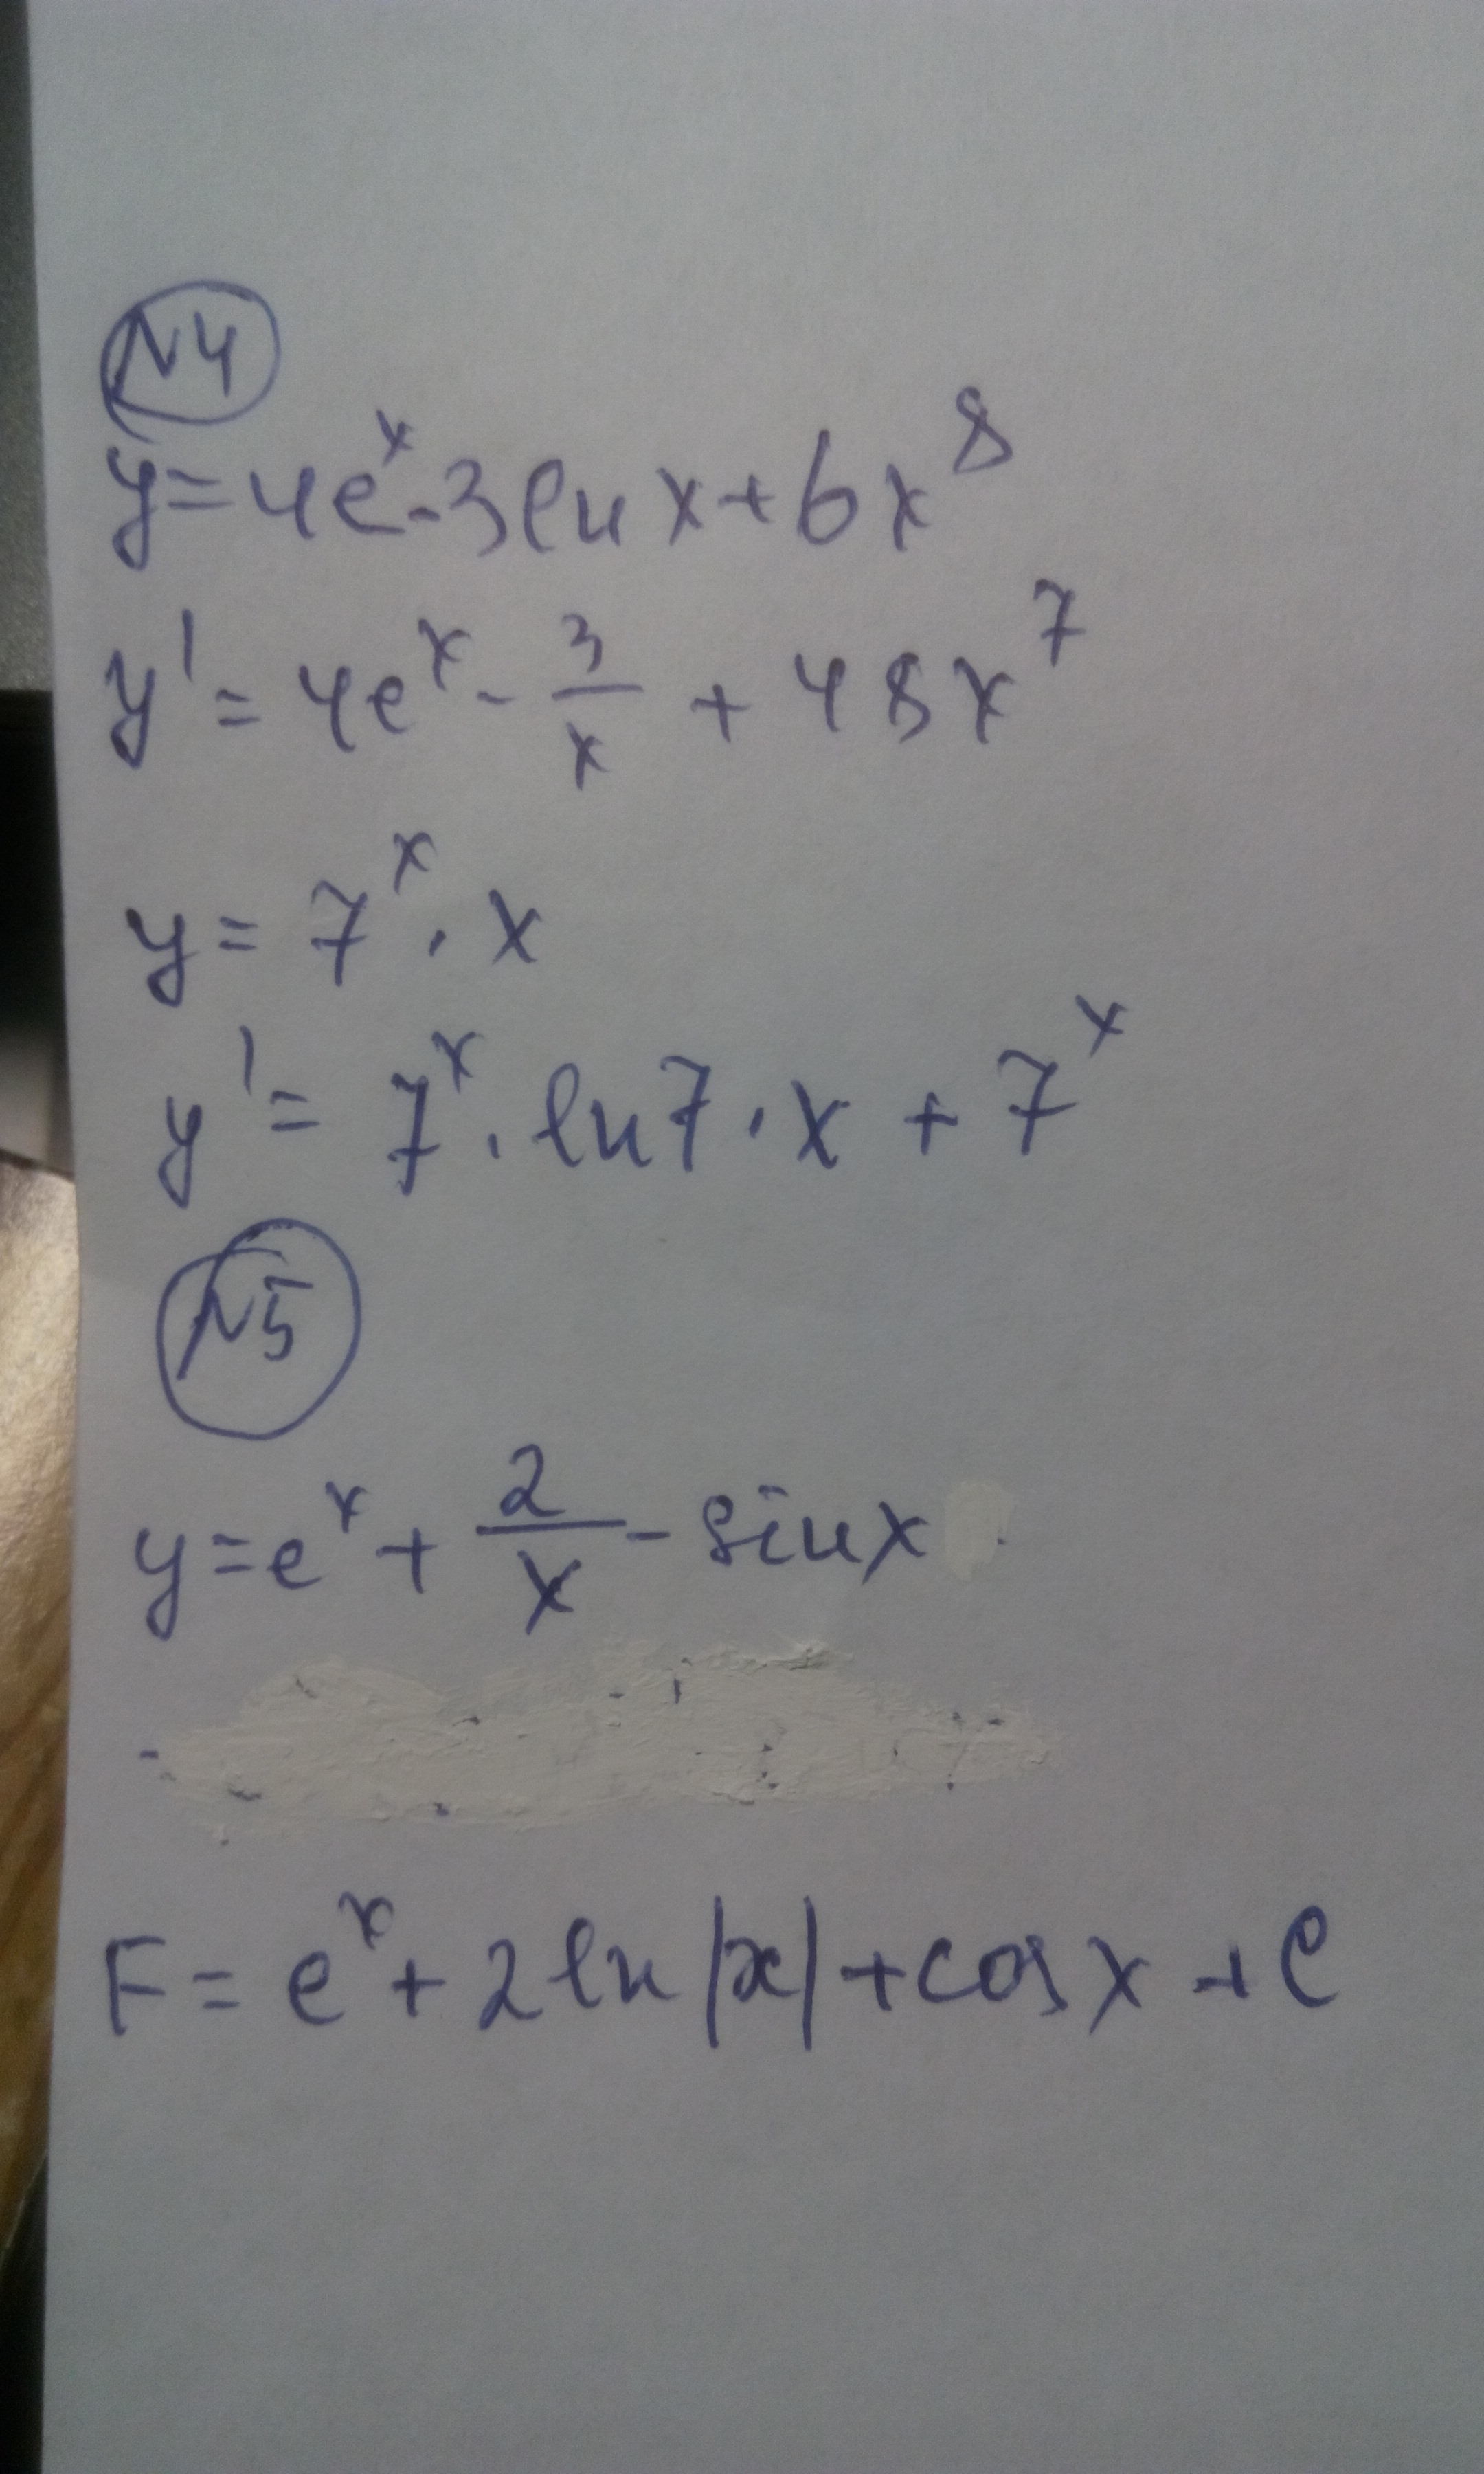 N4
y=4eˣ-3lnx+6x⁸
y'=4eˣ-3/x+48x⁷
y=7ˣ·x
y'=7ˣ·ln7·x+7ˣ
N5
y=eˣ+2/x-sinx
F=eˣ+2ln|x|+cosx+C